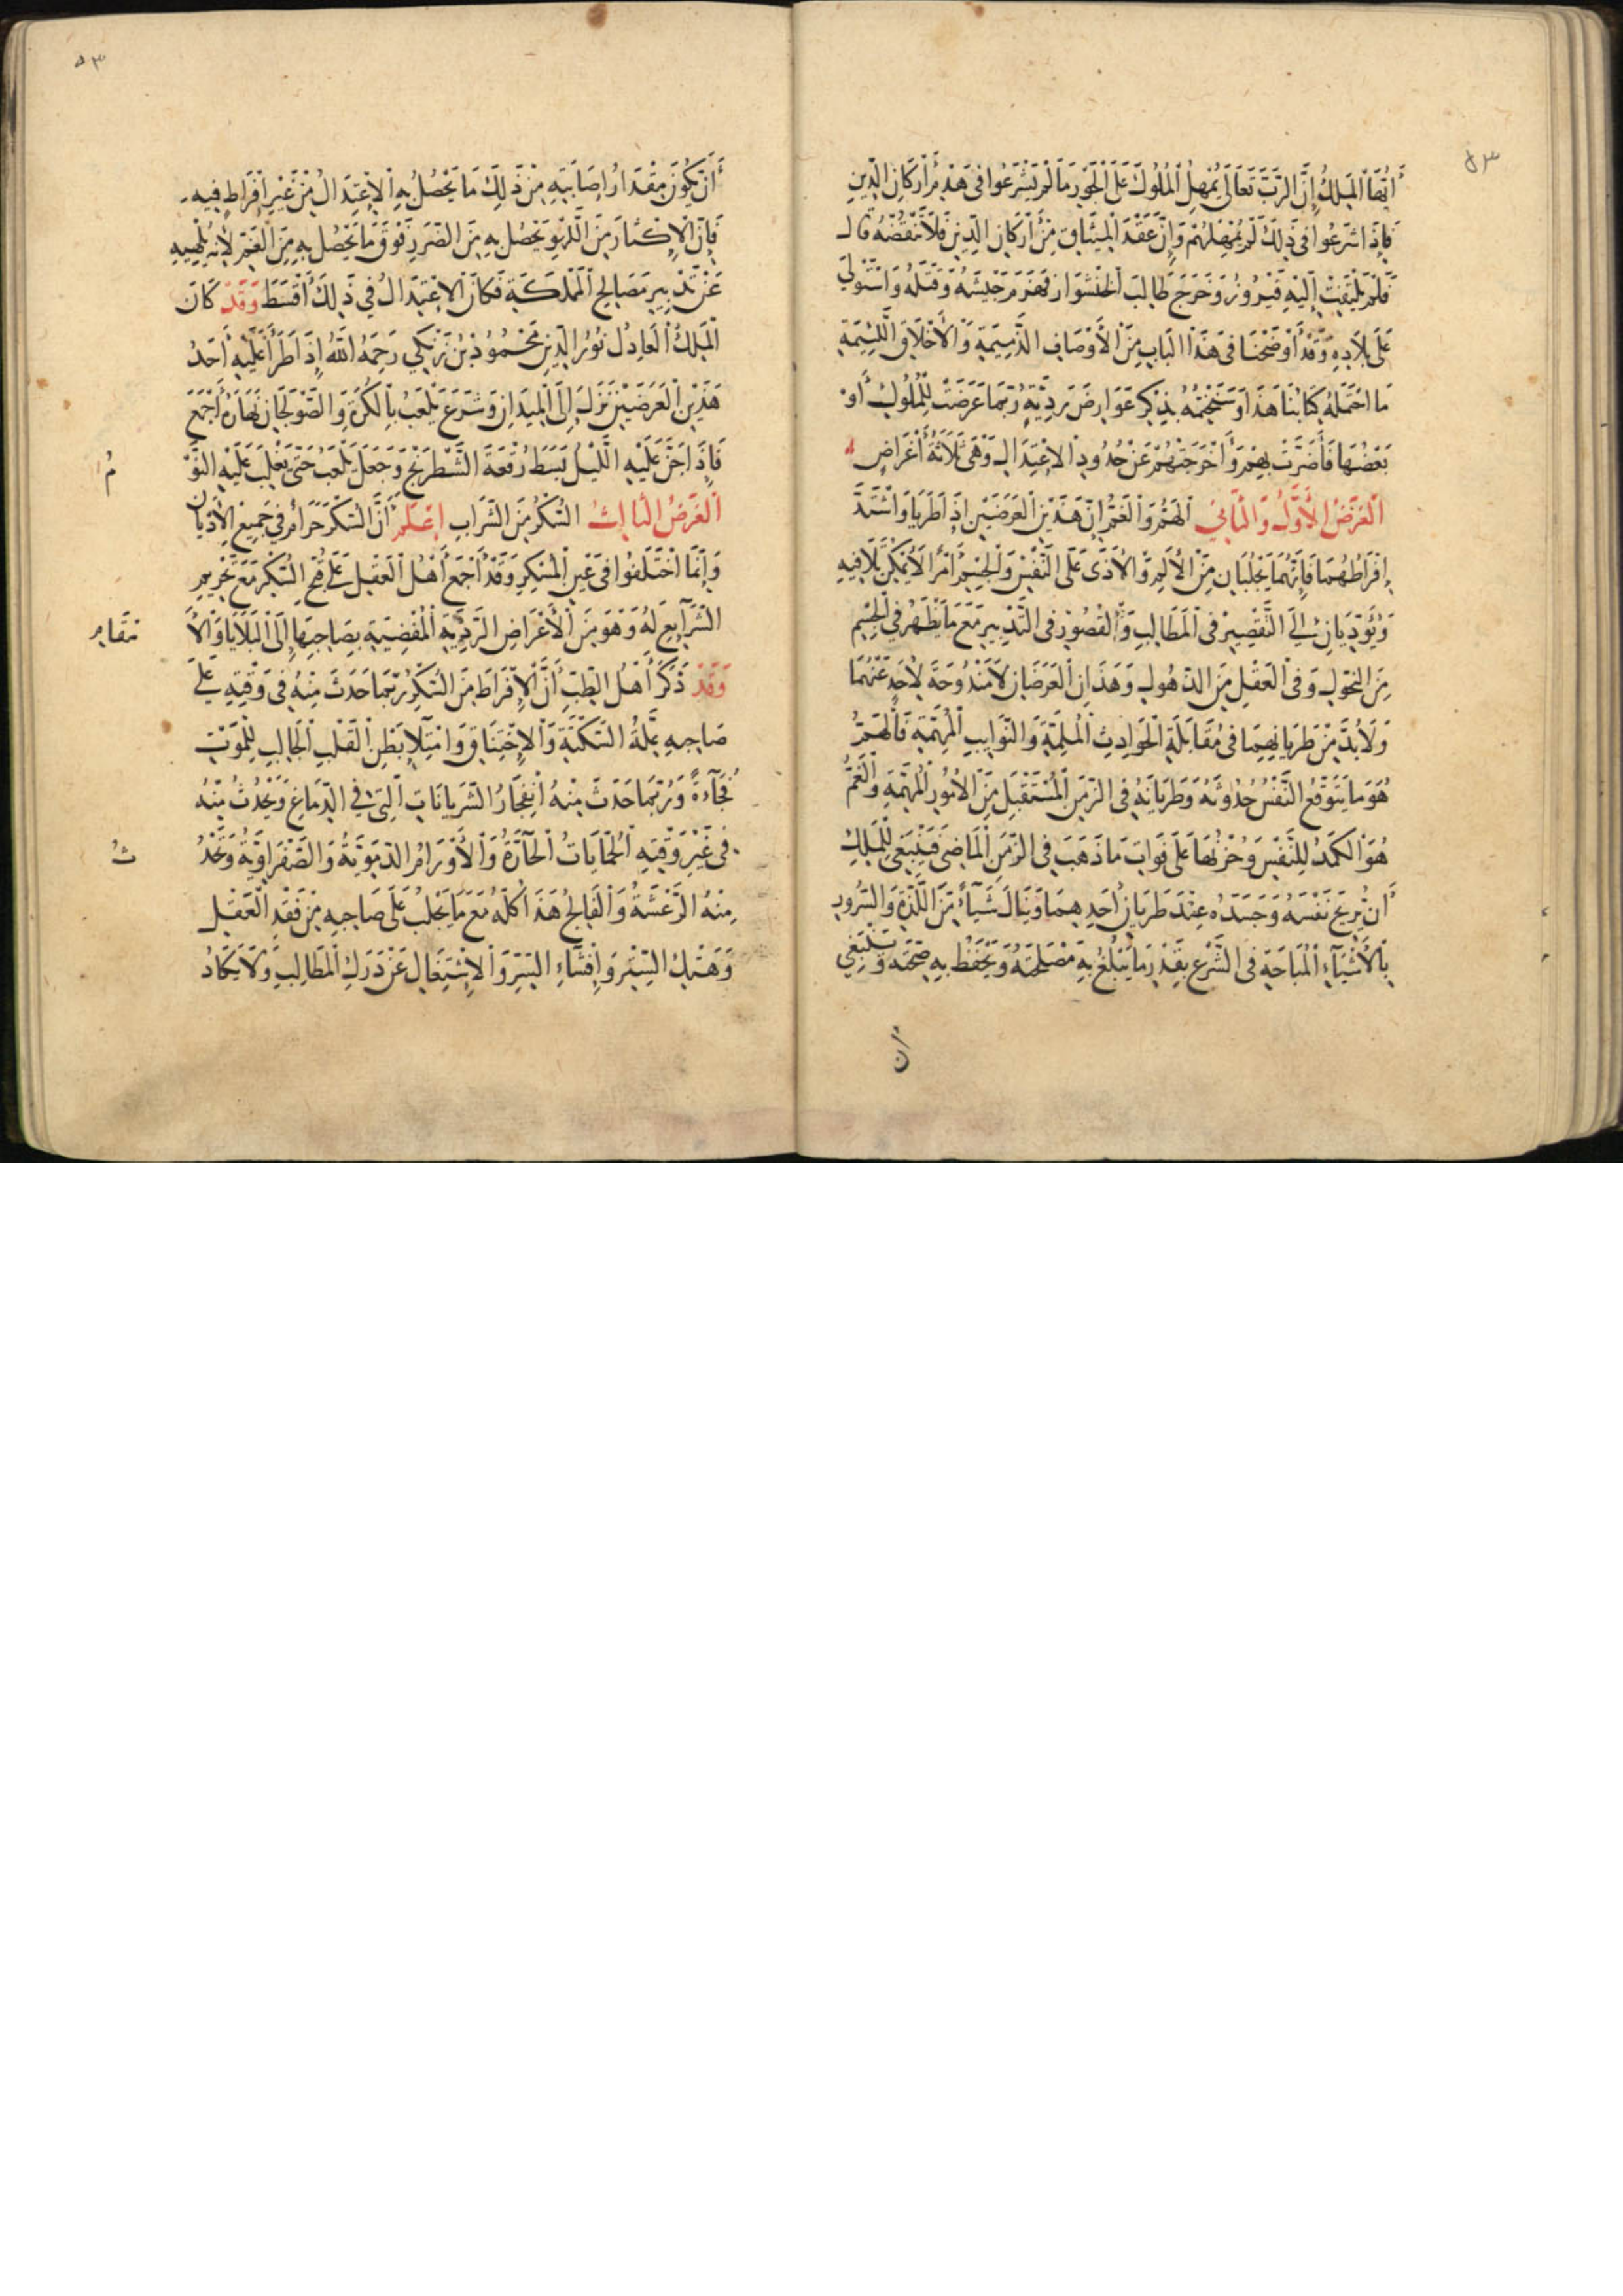 أَيُّهَا الْمَلِكُ إِنَّ الرَّبَّ تَعَالَى يُمْهِلُ الْمُلُوكَ عَلَى الْجَوْرِ مَا لَمْ يَشْرَعُوا فِي هَدْمِ أَرْكَانِ الدِّينِ
فَإِذَا شَرَعُوا فِي ذَلِكَ لَمْ يُمْهِلْهُمْ وَإِنَّ عَقْدَ الْمِيثَاقِ مِنْ أَرْكَانِ الدِّينِ فَلَا تَنْقُضْهُ قَالَ
فَلَمْ يَلْتَفِتْ إِلَيْهِ فَيْرُوزُ وَخَرَجَ طَالِبَ الْخَنْشَوَارِ فَهَزَمَ جَيْشَهُ وَقَتَلَهُ وَاسْتَوْلَى
عَلَى بِلَادِهِ وَقَدْ أَوْضَحْنَا فِي هَذَا الْبَابِ مِنَ الْأَوْصَافِ الذَّمِيمَةِ وَالْأَخْلَاقِ اللَّئِيمَةِ
مَا احْتَمَلَهُ كِتَابُنَا هَذَا وَسَنَخْتِمُهُ بِذِكْرِ عَوَارِضَ رَدِيَّةٍ رُبَّمَا عَرَضَتْ لِلْمُلُوكِ أَوْ
بَعْضُهَا فَأَضَرَّتْ بِهِمْ وَأَخْرَجَتْهُمْ عَنْ حُدُودِ الْاِعْتِدَالِ وَهِيَ ثَلَاثَةُ أَغْرَاضٍ
الْغَرَضُ الْأَوَّلُ وَالثَّانِي الْهَمُّ وَالْغَمُّ إِنَّ هَذَيْنِ الْعَرَضَيْنِ إِذَا طَرَيَا وَاشْتَدَّ
إِفْرَاطُهُمَا فَإِنَّهُمَا يَجْلُبَانِ مِنَ الْأَلَمِ وَالْأَذَى عَلَى النَّفْسِ وَالْجِسْمِ أَمْرًا لَا يُمْكِنُ تَلَافِيهِ
وَيُؤَدِّيَانِ إِلَى التَّقْصِيرِ فِي الْمَطَالِبِ وَالْقُصُورِ فِي التَّدْبِيرِ مَعَ مَا يَظْهَرُ فِي الْجِسْمِ
مِنَ النُّحُولِ وَفِي الْعَقْلِ مِنَ الذُّهُولِ وَهَذَانِ الْعَرَضَانِ لَا مَنْدُوحَةَ لِأَحَدٍ عَنْهُمَا
وَلَا بُدَّ مِنْ طَرَيَانِهِمَا فِي مُقَابَلَةِ الْحَوَادِثِ الْمُلِمَّةِ وَالنَّوَايِبِ الْمُهِمَّةِ فَالْهَمُّ
هُوَ مَا يَتَوَقَّعُ النَّفْسُ حُدُوثَهُ وَطَرَيَانَهُ فِي الزَّمَنِ الْمُسْتَقْبَلِ مِنَ الْأُمُورِ الْمُهِمَّةِ وَالْغَمُّ
هُوَ الْكَمَدُ لِلنَّفْسِ وَحُزْنُهَا عَلَى فَوَاتِ مَا ذَهَبَ فِي الزَّمَنِ الْمَاضِي فَيَنْبَغِي لِلْمَلِكِ
أَنْ يُرِيحَ نَفْسَهُ وَجَسَدَهُ عِنْدَ طَرَيَانِ أَحَدِهِمَا وَيَنَالَ شَيْأً مِنَ اللَّذَّةِ وَالسُّرُورِ
بِالْأَشْيَاءِ الْمُبَاحَةِ فِي الشَّرْعِ بِقَدْرِ مَا يَبْلُغُ بِهِ مَصْلَحَتَهُ وَيَحْفَظُ بِهِ صِحَّتَهُ وَيَنْبَغِي
أَن
٥٣
أَنْ يَكُونَ مِقْدَارُ إِصَابَتِهِ مِنْ ذَلِكَ مَا يَحْصُلُ بِهِ الْاِعْتِدَالُ مِنْ غَيْرِ إِفْرَاطٍ فِيهِ
فَإِنَّ الْإِكْثَارَ مِنَ اللَّهْوِ يَحْصُلُ بِهِ مِنَ الضَّرَرِ فَوْقَ مَا يَحْصُلُ بِهِ مِنَ الْغَمِّ لِأَنَّهُ يُلْهِيهِ
عَنْ تَدْبِيرِ مَصَالِحِ الْمَمْلَكَةِ فَكَانَ الْاِعْتِدَالُ فِي ذَلِكَ أَقْسَطَ وَقَدْ كَانَ
الْمَلِكُ الْعَادِلُ نُورُ الدِّينِ مَحْمُودُ بْنُ زَنْكِي رَحِمَهُ اللهُ إِذَا طَرَأَ عَلَيْهِ أَحَدُ
هَذَيْنِ الْعَرَضَيْنِ نَزَلَ إِلَى الْمِيدَانِ وَشَرَعَ يَلْعَبُ بِالْكُرَةِ وَالصَّوْلَجَانِ نَهَارَهُ أَجْمَعَ
فَإِذَا جَنَّ عَلَيْهِ اللَّيْلُ بَسَطَ رُقْعَةَ الشَّطْرَنْجِ وَجَعَلَ يَلْعَبُ حَتَّى يَغْلِبَ عَلَيْهِ النَّوْ
مُ
الْغَرَضُ الثَّالِثُ السُّكْرُ مِنَ الشَّرَابِ اِعْلَمْ أَنَّ السُّكْرَ حَرَامٌ فِي جَمِيعِ الْأَدْيَانِ
وَإِنَّمَا اخْتَلَفُوا فِي عَيْنِ الْمُسْكِرِ وَقَدْ أَجْمَعَ أَهْلُ الْعَقْلِ عَلَى قُبْحِ السُّكْرِ مَعَ تَحْرِيمِ
الشَّرَآيِعِ لَهُ وَهُوَ مِنَ الْأَعْرَاضِ الرَّدِيَّةِ الْمُفْضِيَةِ بِصَاحِبِهَا إِلَى الْبَلَايَا وَالْاِ
نْتَقَامِ
وَقَدْ ذَكَرَ أَهْلُ الطِّبِّ أَنَّ الْإِفْرَاطَ مِنَ السُّكْرِ رُبَّمَا حَدَثَ مِنْهُ فِي وَقْتِهِ عَلَى
صَاحِبِهِ عِلَّةُ السَّكْتَةِ وَالْاِخْتِنَاقِ وَامْتِلَإِ بَطْنِ الْقَلْبِ الْجَالِبِ لِلْمَوْتِ
فُجَآءَةً وَرُبَّمَا حَدَثَ مِنْهُ انْفِجَارُ الشَّرَيَانَاتِ الَّتِي فِي الدِّمَاغِ وَيَحْدُثُ مِنْهُ
فِي غَيْرِ وَقْتِهِ الْحُمَّايَاتُ الْحَآرَّةُ وَالْأَوْرَامُ الدَّمَوِيَّةُ وَالصَّفْرَاوِيَّةُ وَيَحْدُ
ثُ
مِنْهُ الرَّعْشَةُ وَالْفَالِجُ هَذَا كُلُّهُ مَعَ مَا يَجْلُبُ عَلَى صَاحِبِهِ مِنْ فَقْدِ الْعَقْلِ
وَهَتْكِ السِّتْرِ وَإِفْشَاءِ السِّرِّ وَالْاِشْتِغَالِ عَنْ دَرَكِ الْمَطَالِبِ وَلَا يَكَادُ